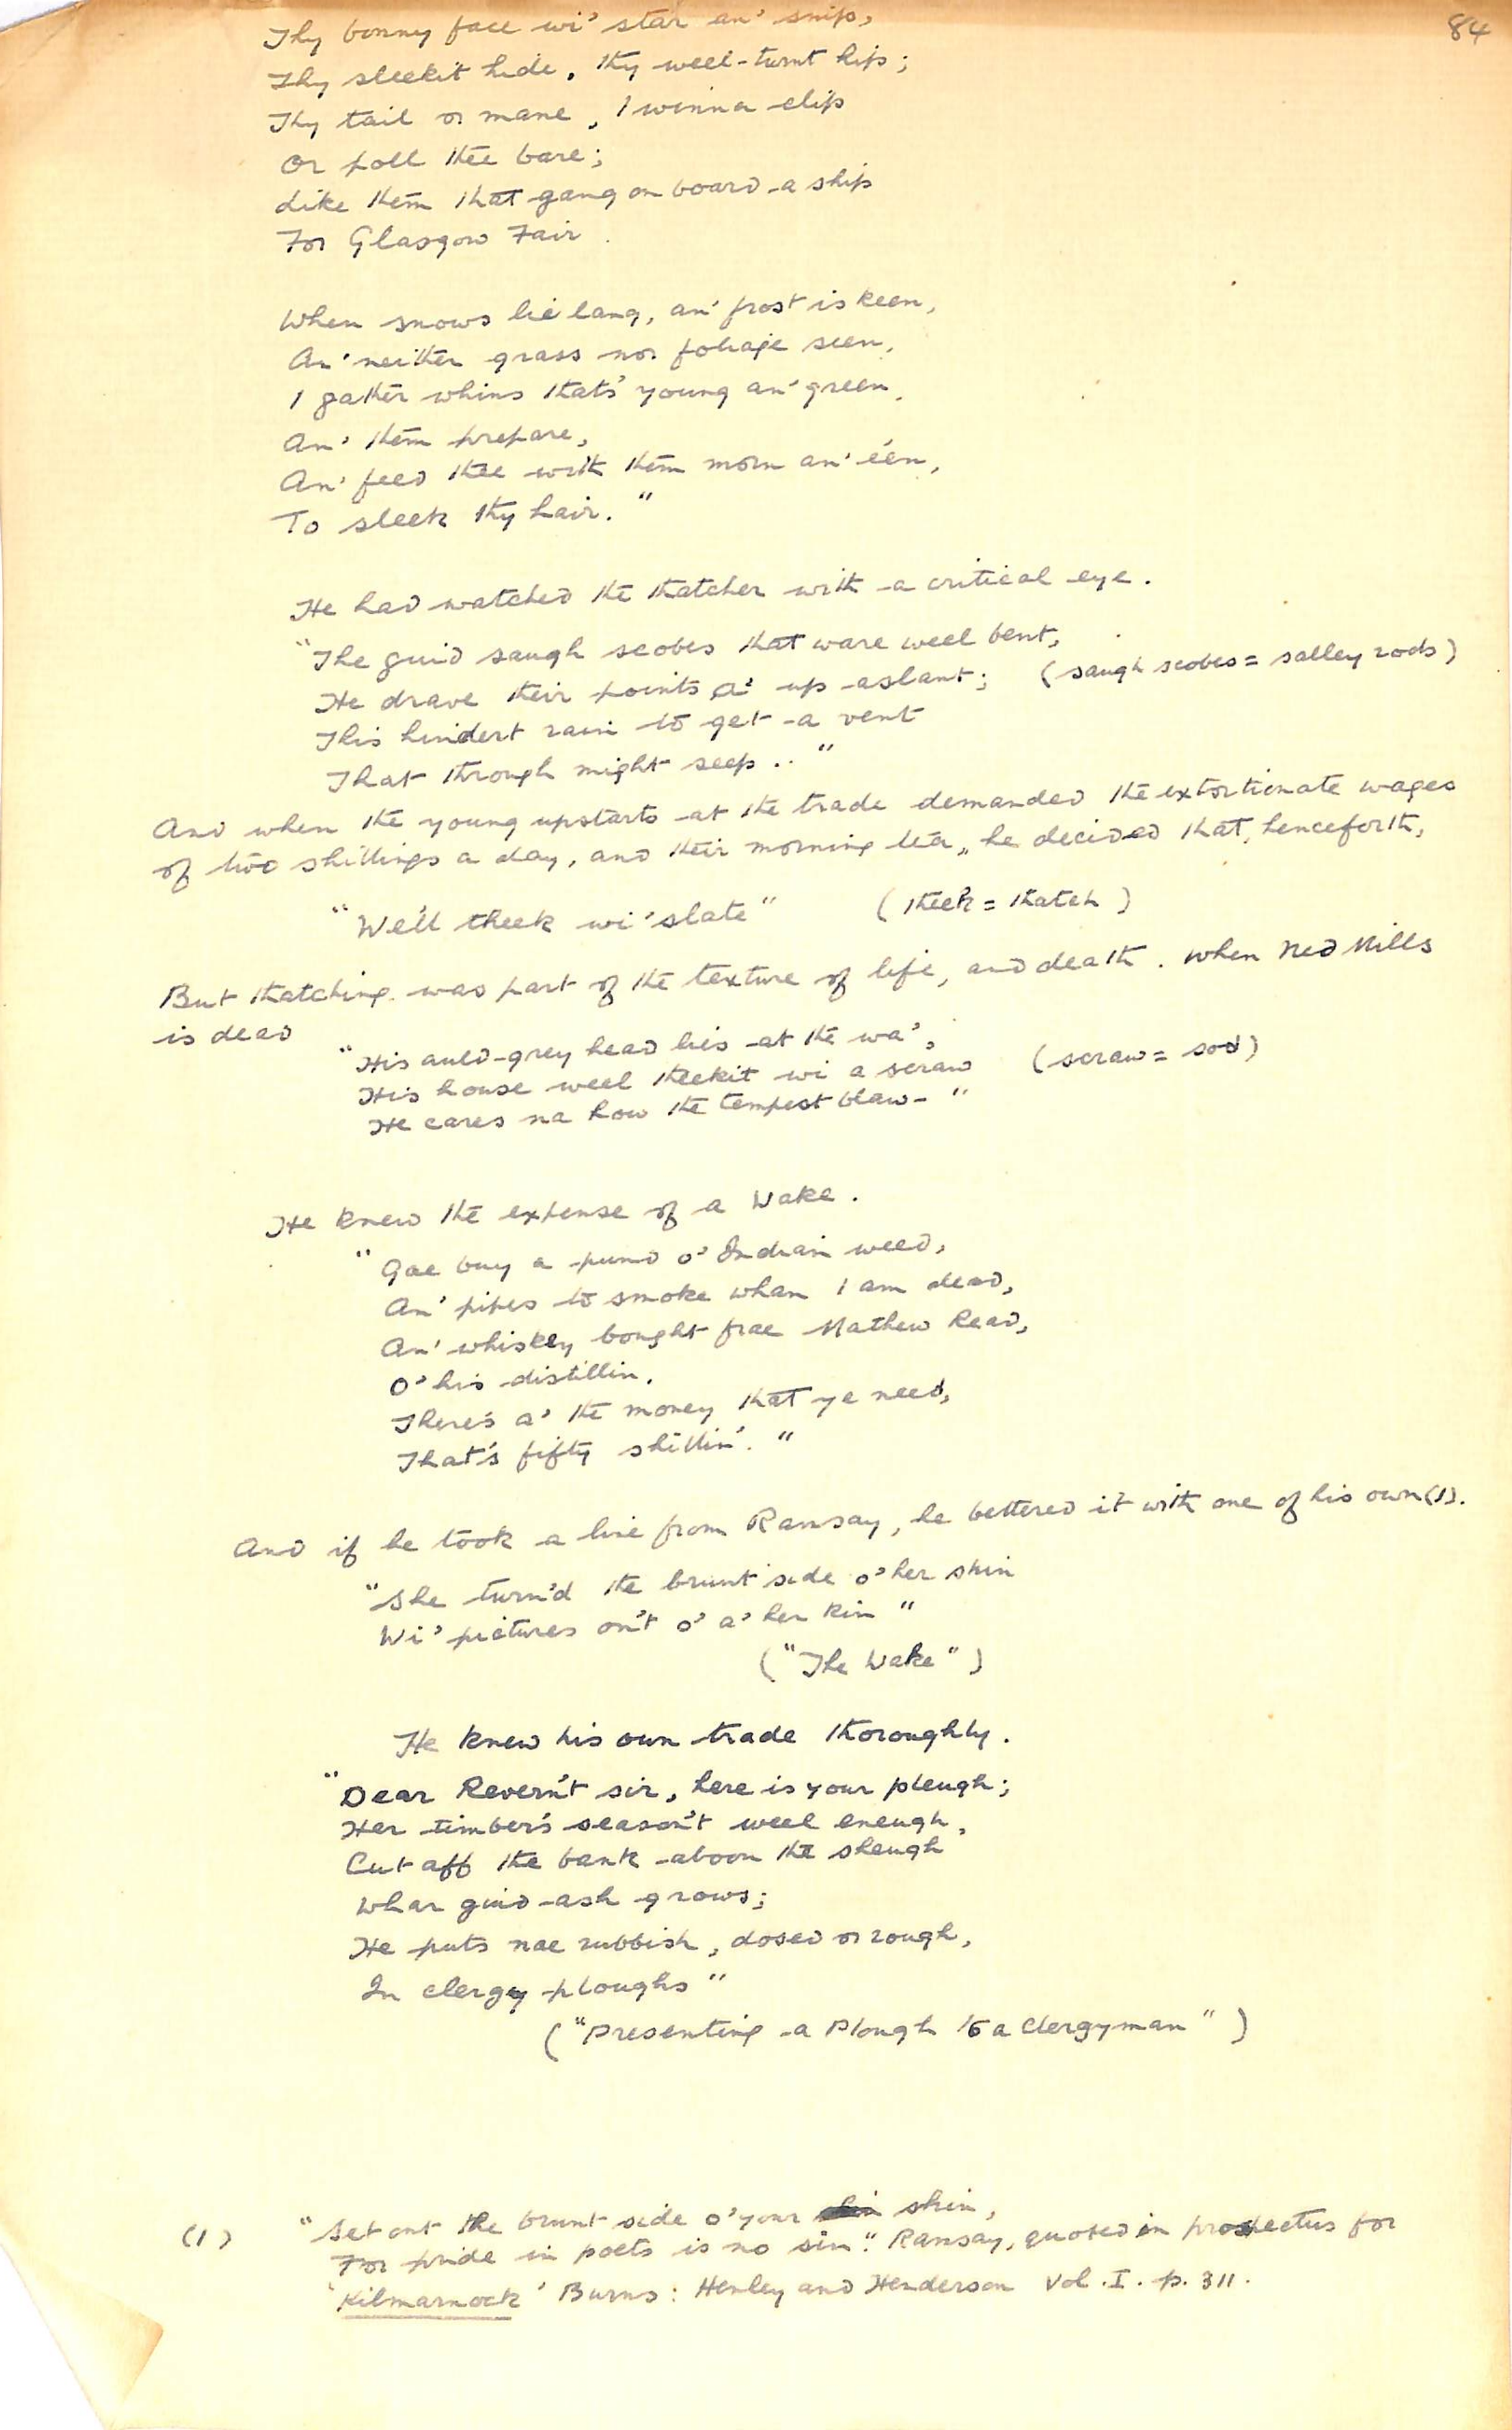 84
Thy bonny face wi' star an' snip,
Thy sleekit hide, thy weel-turnt hip;
Thy tail or mane, I winna clip
Or poll thee bare;
Like them that gang on board a ship
For Glasgow Fair.
When snows lie lang, an' frost is keen,
An' neither grass nor foliage seen,
I gather whins that's young an' green,
An' them prepare,
An' feed thee with them morn an' e'en,
To sleek thy hair."
He had watched the thatcher with a critical eye.
"The guid saugh scobes that ware weel bent,
He drave their points a' up aslant; (saugh scobes = salley rods)
This hindert rain to get a vent
That through might seep.."
And when the young upstarts at the trade demanded the extortionate wages
of two shillings a day, and their morning tea, he decided that, henceforth,
"We'll theek wi' slate" (theek = thatch)
But thatching was part of the texture of life, and death. When Ned Mills
is dead
"His auld-grey head lies at the wa',
His house weel theekit wi a scraw (scraw = sod)
He cares na how the tempest blaw- "
He knew the expense of a Wake.
"Gae buy a pund o' Indian weed,
An' pipes to smoke whan I am dead,
An' whiskey bought frae Mathew Read,
O' his distillin.
There's a' the money that ye need,
That's fifty shillin'."
And if he took a line from Ramsay, he bettered it with one of his own (1).
"She turn'd the brunt side o' her shin
Wi' pictures on't o' a' her kin "
("The Wake")
He knew his own trade thoroughly.
"Dear Revern't sir, here is your pleugh;
Her timber's season't weel eneugh,
Cut aff the bank aboon the sheugh
Whar guid ash grows;
He puts nae rubbish, dosed or rough,
In clergy ploughs"
("Presenting a Plough to a Clergyman")
(1) "Set out the brunt side o' your shin,
For pride in poets is no sin." Ramsay, quoted in prospectus for
'Kilmarnock' Burns: Henley and Henderson Vol. I. p. 311.